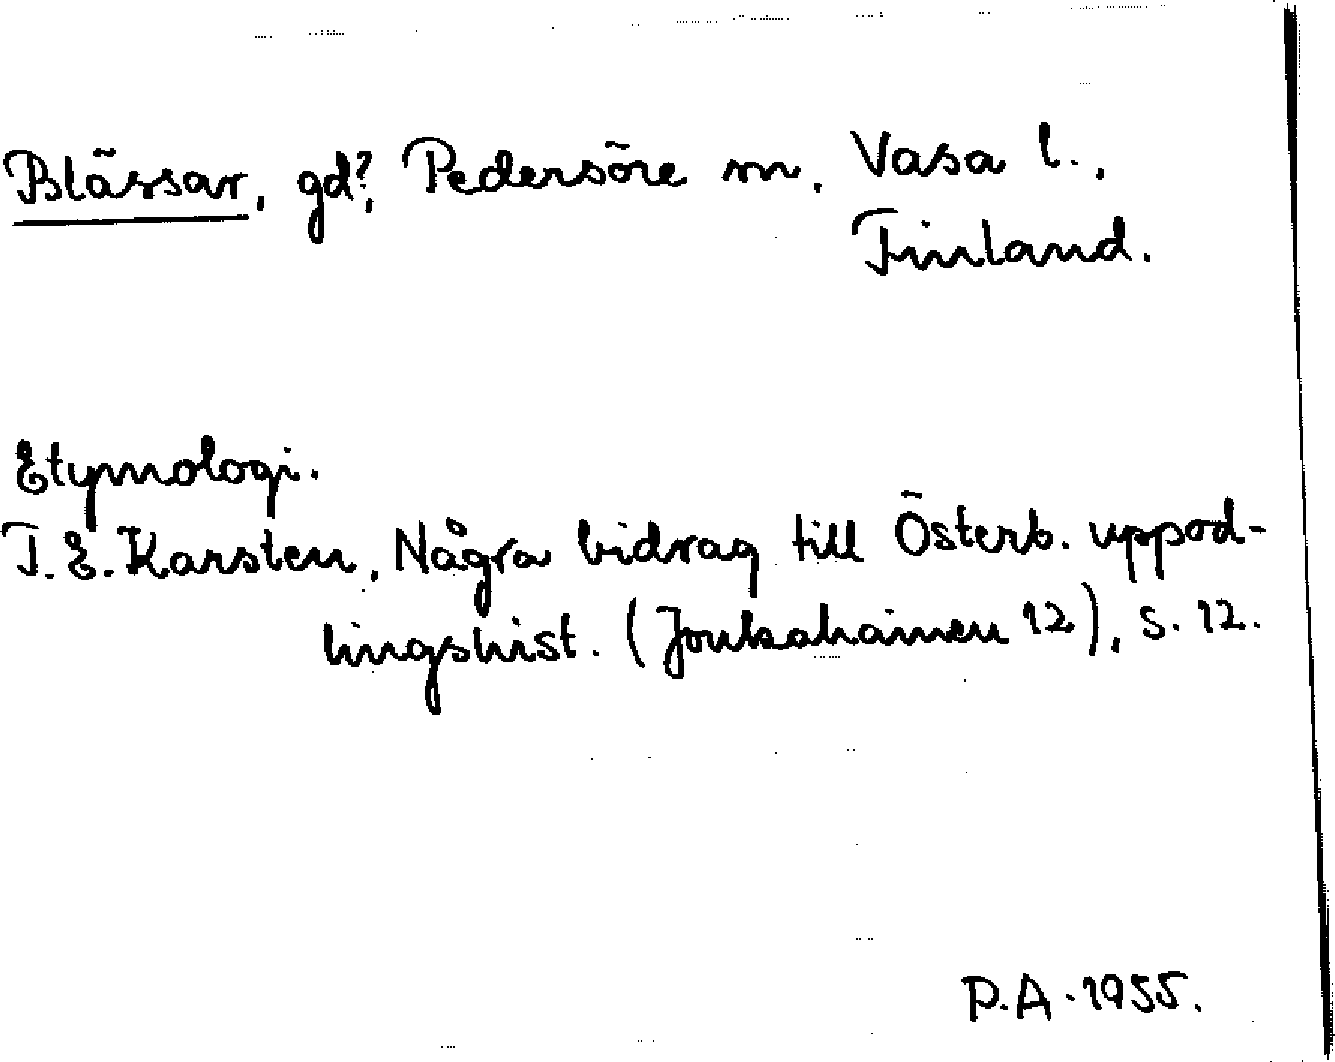 Blässar, gd?, Pedersöre sn, Vasa l.,
Finland.
Etymologi.
T.E. Karsten, Några bidrag till Österb. uppod-
lingshist. (Joukahainen 12), s. 12.
P.A. 1955.